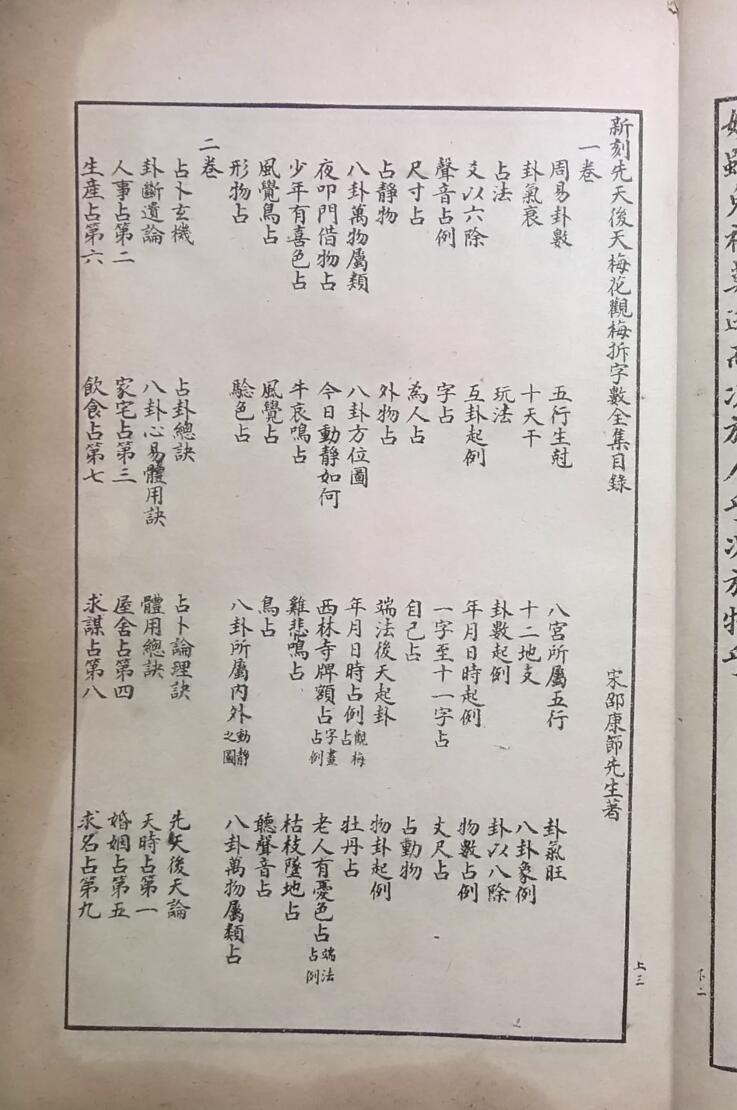 新刻先天後天梅花觀梅拆字數全集目錄 宋邵康節先生著
一卷
周易卦數 五行生尅 八宮所屬五行 卦氣旺
卦氣衰 十天干 十二地支 八卦象例
占法 玩法 卦數起例 卦以八除
爻以六除 互卦起例 年月日時起例 物數占例
聲音占例 字占 一字至十一字占 丈尺占
尺寸占 為人占 自己占 占動物
占静物 外物占 端法後天起卦 物卦起例
八卦萬物屬類 八卦方位圖 年月日時占例觀梅占 牡丹占
夜叩門借物占 今日動静如何 西林寺牌額占字畫占例 老人有憂色占端法占例
少年有喜色占 牛哀鳴占 雞悲鳴占 枯枝墜地占
風覺鳥占 風覺占 鳥占 聽聲音占
形物占 驗色占 八卦所屬內外動静之圖 八卦萬物屬類占
二卷
占卜玄機 占卦總訣 占卜論理訣 先天後天論
卦斷遺論 八卦心易體用訣 體用總訣 天時占第一
人事占第二 家宅占第三 屋舍占第四 婚姻占第五
生産占第六 飲食占第七 求謀占第八 求名占第九
上三
下二